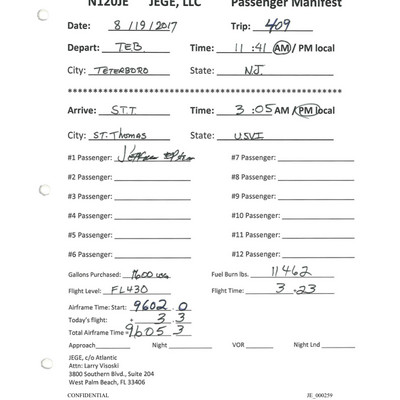 N120JE JEGE, LLC Passenger Manifest
Date: 8/19/2017 Trip: 409
Depart: TEB Time: 11:41 AM / PM local
City: TETERBORO State: N.J.
Arrive: S.T.T. Time: 3:05 AM / PM local
City: ST. Thomas State: USVI
#1 Passenger: #7 Passenger:
#2 Passenger: #8 Passenger:
#3 Passenger: #9 Passenger:
#4 Passenger: #10 Passenger:
#5 Passenger: #11 Passenger:
#6 Passenger: #12 Passenger:
Gallons Purchased: Fuel Burn lbs. 11462
Flight Level: FL430 Flight Time: 3.23
Airframe Time: Start: 9602.0
Today's flight: + 3.3
Total Airframe Time = 9605.3
Approach Night VOR Night Lnd
JEGE, c/o Atlantic
Attn: Larry Visoski
3800 Southern Blvd., Suite 204
West Palm Beach, FL 33406
CONFIDENTIAL JE_000259